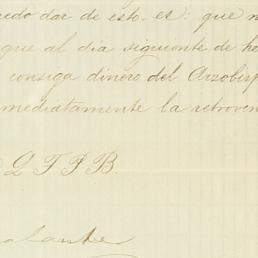 edo dar de esto. es: que n
que al día siguiente de he
consiga dinero del Arzobisp
mediatamente la retroven
Q T P B.
alante